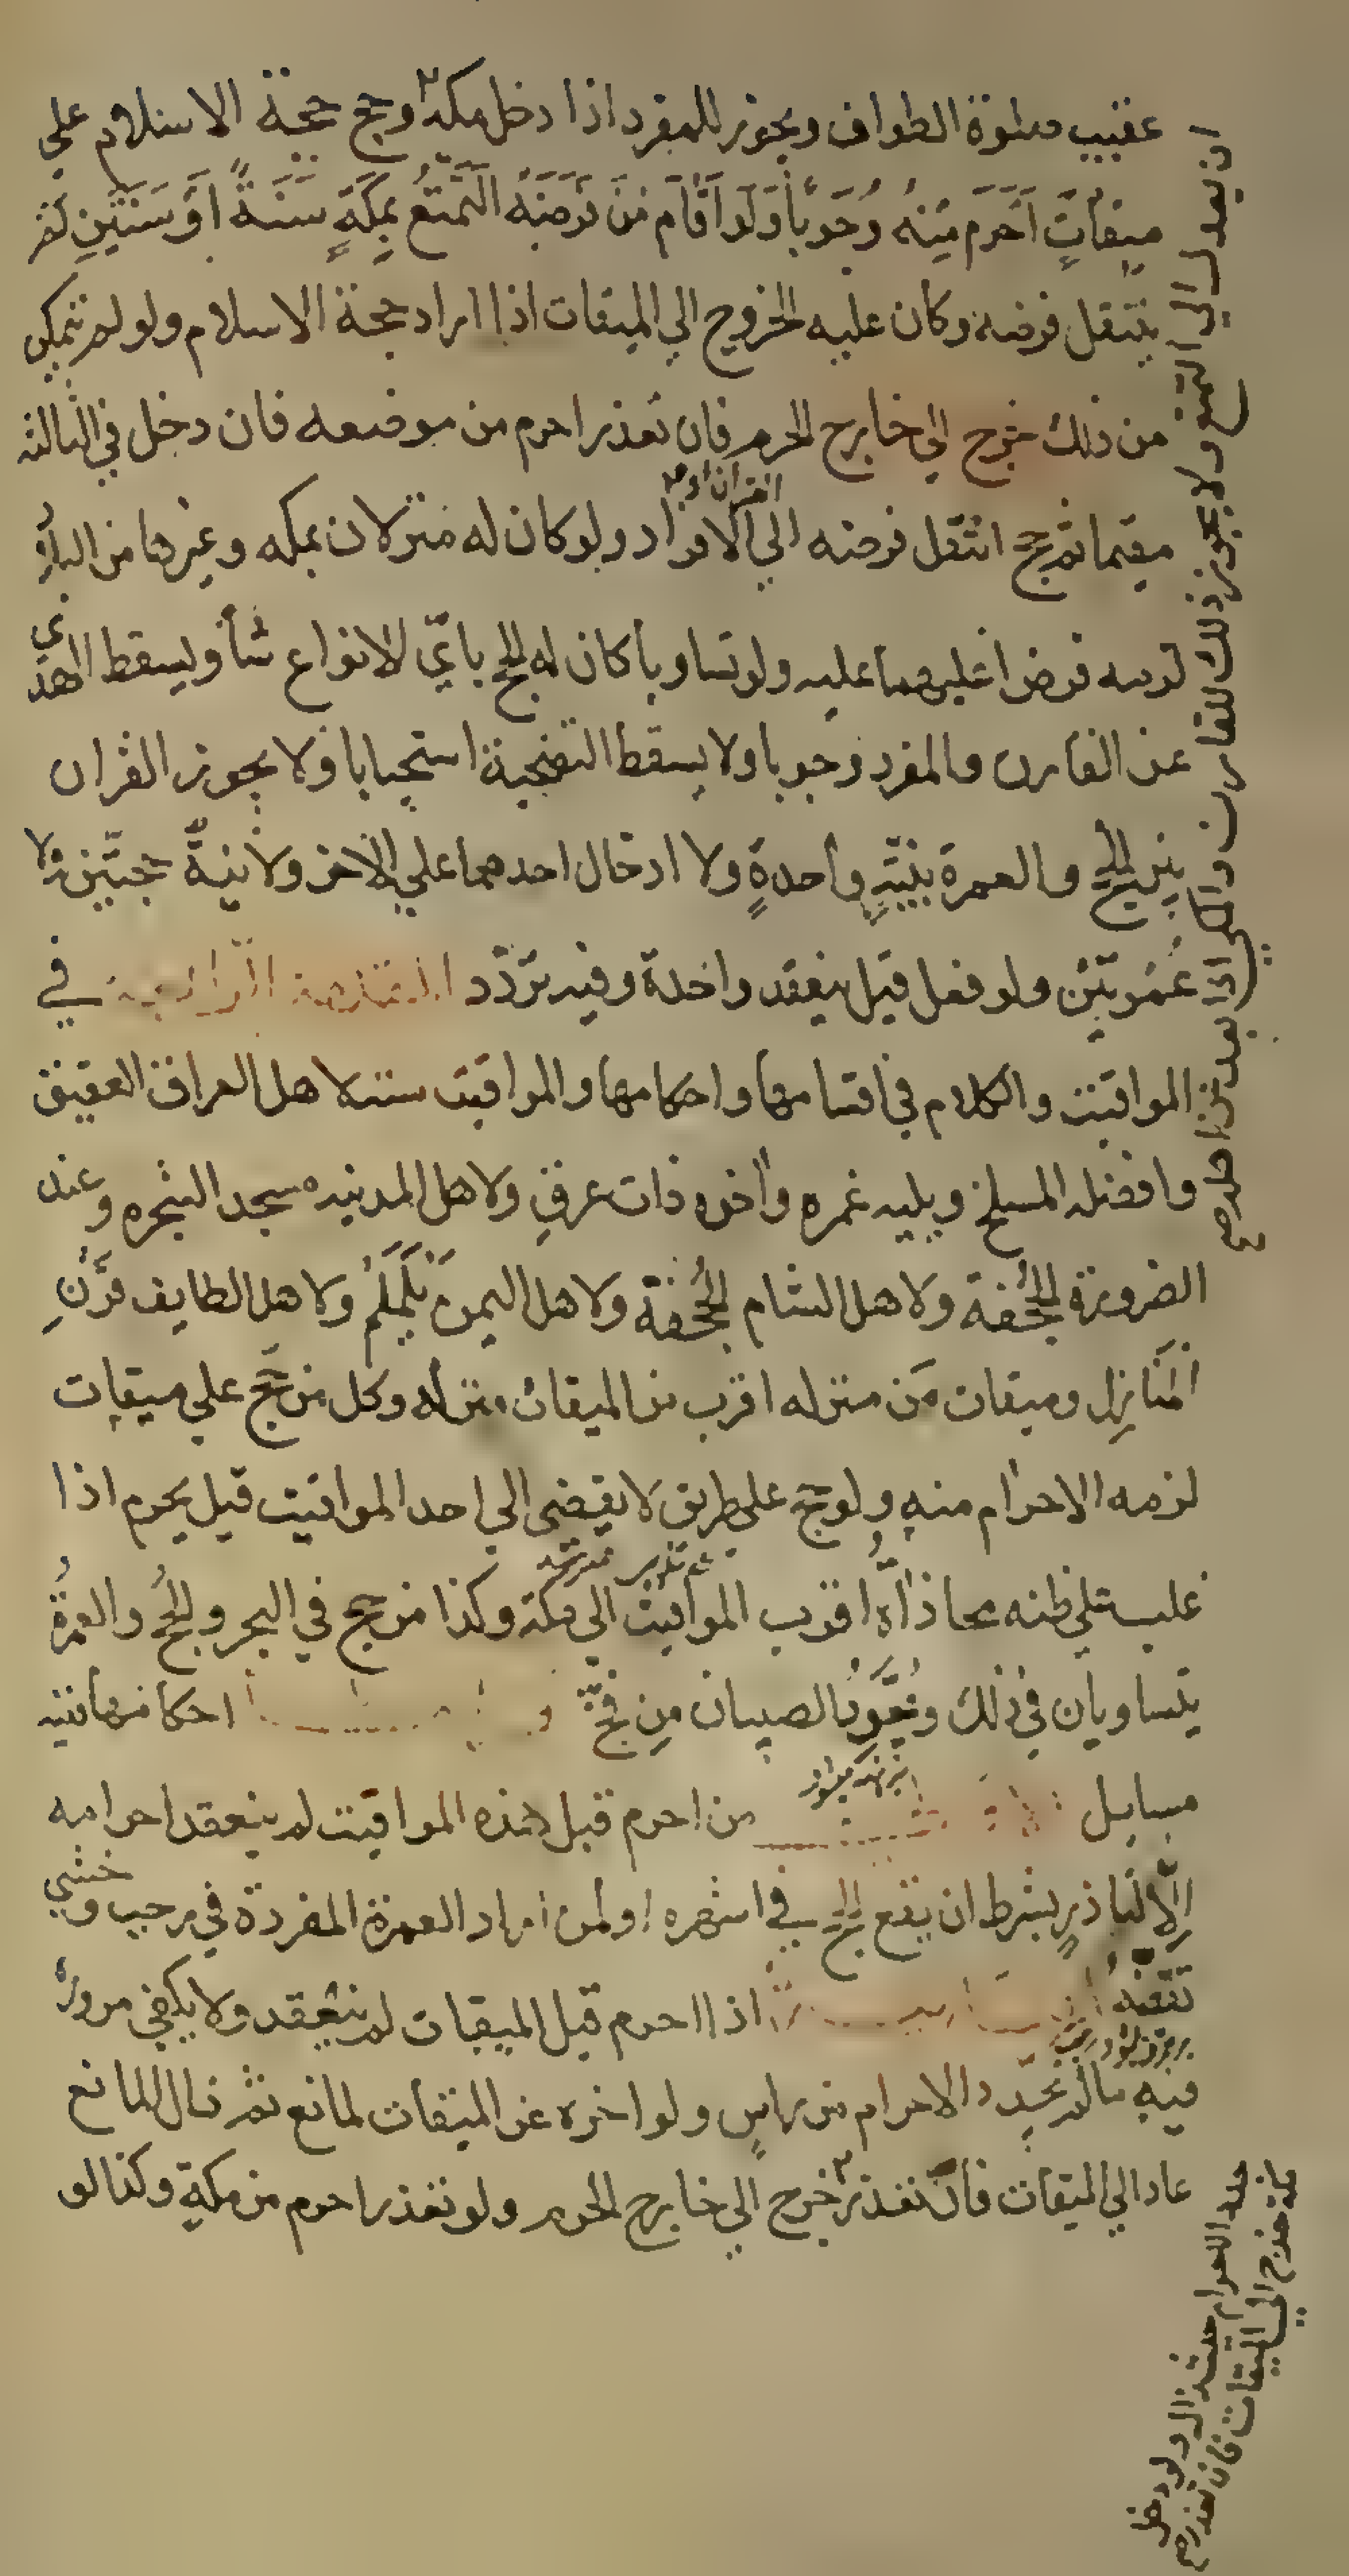 عقيب صلوة الطواف ويجوز للمفرد اذا دخل مكة وحج حجة الاسلام علي
ميقات احرم منه وجوبا ولو اقام من فرضه التمتع بمكة سنة او سنتين لم
ينتقل فرضه وكان عليه الخروج الي الميقات اذا اراد حجة الاسلام ولو لم يتمكن
من ذلك خرج الي خارج الحرم فان تعذر احرم من موضعه فان دخل في الثالثه
مقيما ثم حج انتقل فرضه الي القران او الافراد ولو كان له منزلان بمكه وغيرها من البلاد
لزمه فرض اغلبهما عليه ولو تساويا كان له الحج باي الانواع شأ ويسقط الهدي
عن القارن والمفرد وجوبا ولا يسقط التضحية استحبابا ولا يجوز القران
بين الحج والعمرة بنية واحدة ولا ادخال احدهما علي الاخر ولا نية حجتين ولا
عمرتين ولو فعل قيل ينعقد واحدة وفيه تردد المقدمة الرابعة في
المواقيت والكلام في اقسامها واحكامها والمواقيت ستة لاهل العراق العقيق
وافضله المسلخ ويليه غمره واخره ذات عرق ولاهل المدينه مسجد الشجره وعند
الضرورة الجحفة ولاهل الشام الجحفة ولاهل اليمن يلملم ولاهل الطايف قرن
المنازل وميقات من منزله اقرب من الميقات منزله وكل من حج علي ميقات
لزمه الاحرام منه ولو حج علي طريق لا يفضي الي احد المواقيت قيل يحرم اذا
غلب علي ظنه محاذاة اقرب المواقيت الي مكة وكذا من حج في البحر والحج والعمرة
يتساويان في ذلك وتجرد الصبيان من فخ احكامها ففيه
مسايل من احرم قبل هذه المواقيت لم ينعقد احرامه
الا لناذر بشرط ان يقع الحج في اشهره او لمن اراد العمرة المفردة في رجب وخشي
تقضيه اذا احرم قبل الميقات لم ينعقد ولا يكفي مروره
فيه ما لم يجدد الاحرام من راس ولو اخره عن الميقات لمانع ثم زال المانع
عاد الي الميقات فان تعذر خرج الي خارج الحرم ولو تعذر احرم من مكة وكذا لو
ان يعدل الي التمتع ولا يجوز ذلك للقارن والمكي اذا بعد من اهله